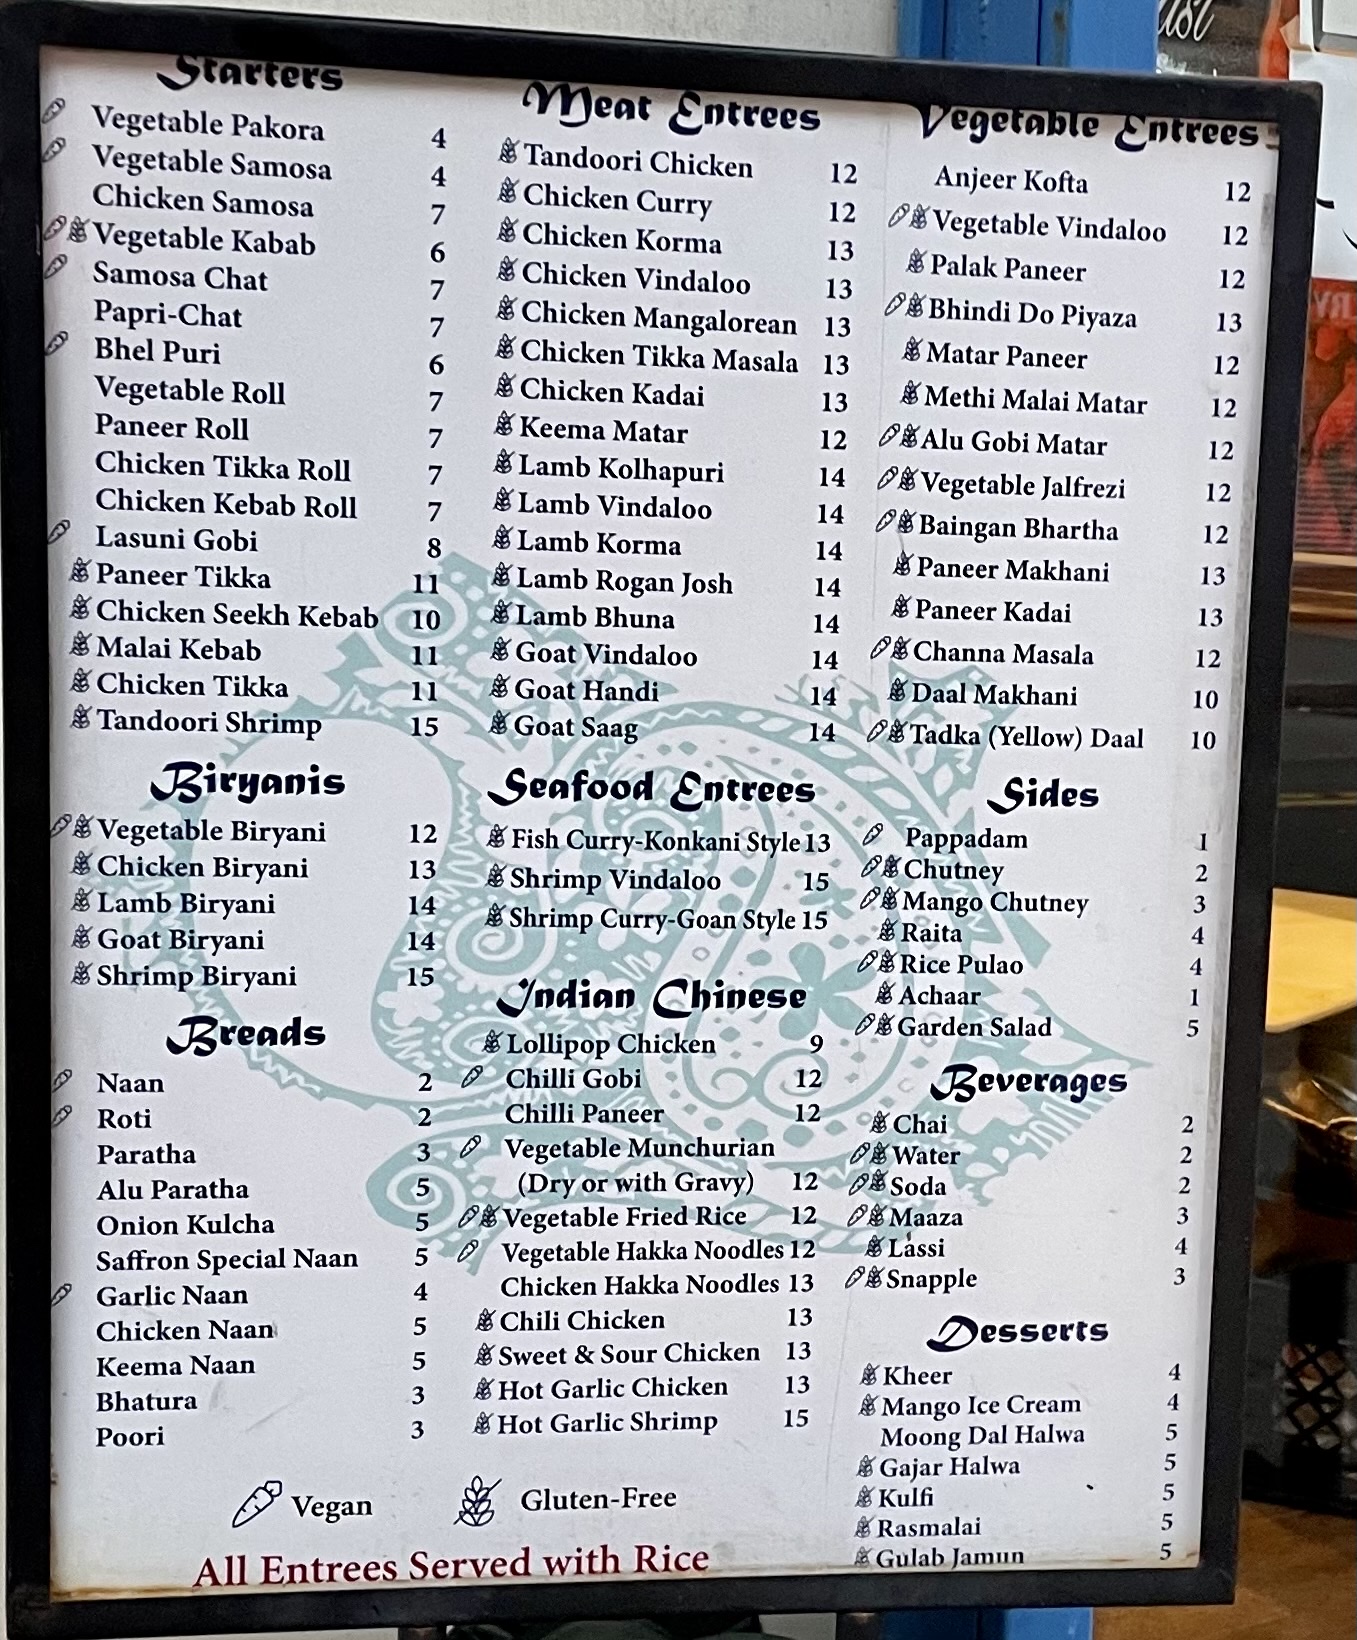 Starters
Vegetable Pakora 4
Vegetable Samosa 4
Chicken Samosa 7
Vegetable Kabab 6
Samosa Chat 7
Papri-Chat 7
Bhel Puri 6
Vegetable Roll 7
Paneer Roll 7
Chicken Tikka Roll 7
Chicken Kebab Roll 7
Lasuni Gobi 8
Paneer Tikka 11
Chicken Seekh Kebab 10
Malai Kebab 11
Chicken Tikka 11
Tandoori Shrimp 15
Biryanis
Vegetable Biryani 12
Chicken Biryani 13
Lamb Biryani 14
Goat Biryani 14
Shrimp Biryani 15
Breads
Naan 2
Roti 2
Paratha 3
Alu Paratha 5
Onion Kulcha 5
Saffron Special Naan 5
Garlic Naan 4
Chicken Naan 5
Keema Naan 5
Bhatura 3
Poori 3
Meat Entrees
Tandoori Chicken 12
Chicken Curry 12
Chicken Korma 13
Chicken Vindaloo 13
Chicken Mangalorean 13
Chicken Tikka Masala 13
Chicken Kadai 13
Keema Matar 12
Lamb Kolhapuri 14
Lamb Vindaloo 14
Lamb Korma 14
Lamb Rogan Josh 14
Lamb Bhuna 14
Goat Vindaloo 14
Goat Handi 14
Goat Saag 14
Seafood Entrees
Fish Curry-Konkani Style 13
Shrimp Vindaloo 15
Shrimp Curry-Goan Style 15
Indian Chinese
Lollipop Chicken 9
Chilli Gobi 12
Chilli Paneer 12
Vegetable Munchurian
(Dry or with Gravy) 12
Vegetable Fried Rice 12
Vegetable Hakka Noodles 12
Chicken Hakka Noodles 13
Chili Chicken 13
Sweet & Sour Chicken 13
Hot Garlic Chicken 13
Hot Garlic Shrimp 15
Vegetable Entrees
Anjeer Kofta 12
Vegetable Vindaloo 12
Palak Paneer 12
Bhindi Do Piyaza 13
Matar Paneer 12
Methi Malai Matar 12
Alu Gobi Matar 12
Vegetable Jalfrezi 12
Baingan Bhartha 12
Paneer Makhani 13
Paneer Kadai 13
Channa Masala 12
Daal Makhani 10
Tadka (Yellow) Daal 10
Sides
Pappadam 1
Chutney 2
Mango Chutney 3
Raita 4
Rice Pulao 4
Achaar 1
Garden Salad 5
Beverages
Chai 2
Water 2
Soda 2
Maaza 3
Lassi 4
Snapple 3
Desserts
Kheer 4
Mango Ice Cream 4
Moong Dal Halwa 5
Gajar Halwa 5
Kulfi 5
Rasmalai 5
Gulab Jamun 5
Vegan
Gluten-Free
All Entrees Served with Rice